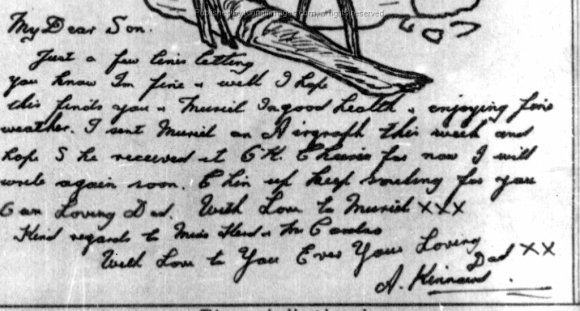 My Dear Son.
Just a few lines letting
you know Im fine & well I hope
this finds you & Muriel In good health & enjoying fine
weather. I sent Muriel an Airgraph this week and
hope She received it O K. Cheerio for now I will
write again soon. Chin up keep smiling for you
Loving Dad. With Love to Muriel XXX
Kind regards to &
With Love to You Ever Your Loving
Dad XX
A. Kinnaird.